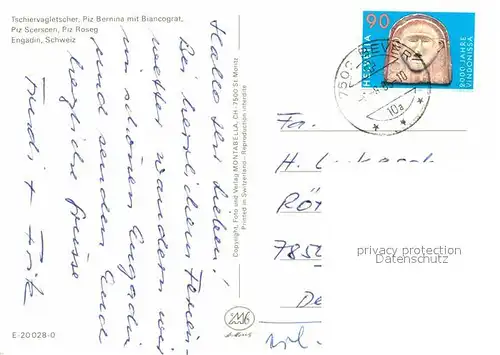 Tschiervagletscher, Piz Bernina mit Biancograt,
Piz Scerscen, Piz Roseg
Engadin, Schweiz
Hallo Ihr Lieben!
Bei herrlichem Ferien-
wetter wandern wir
im schönen Engadin
und senden Euch
herzliche Grüsse
Trudi + Fritz
E-20028-0
Copyright, Foto und Verlag MONTABELLA, CH-7500 St. Moritz
Printed in Switzerland - Reproduction interdite
90
HELVETIA
2000 JAHRE
VINDONISSA
7502 BEVER
10a
Fa.
H.
RÖ
785
De
privacy protection
Datenschutz